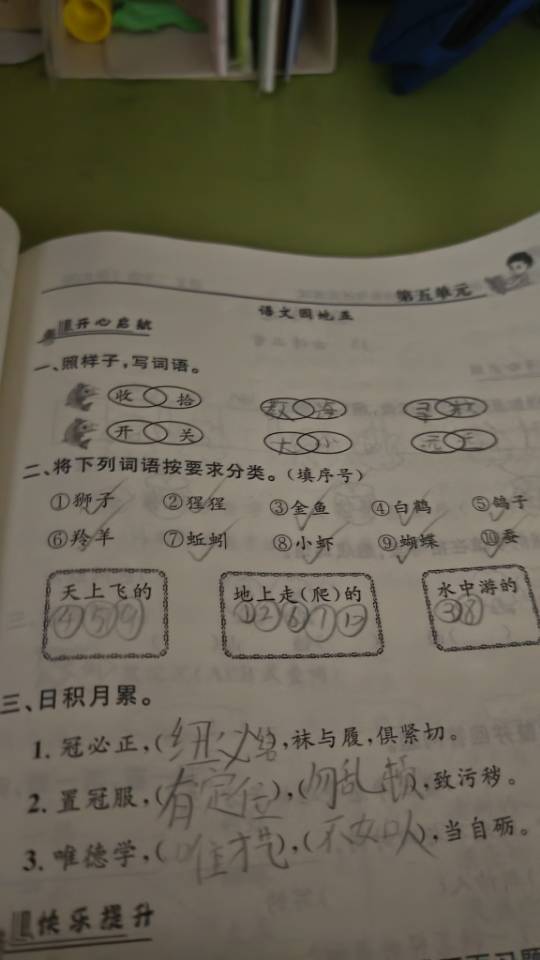 第五单元
语文园地五
开心启航
一、照样子,写词语。
收 拾 教 海
开 关 大 小 元
二、将下列词语按要求分类。(填序号)
①狮子 ②猩猩 ③金鱼 ④白鹤 ⑤鸽子
⑥羚羊 ⑦蚯蚓 ⑧小虾 ⑨蝴蝶 ⑩蚕
天上飞的 地上走(爬)的 水中游的
④⑤⑨ ①②⑥⑦⑩ ③⑧
三、日积月累。
1. 冠必正,(纽必结,袜与履,俱紧切。
2. 置冠服,(有定位),(勿乱顿,致污秽。
3. 唯德学,(唯才艺),(不如人),当自砺。
快乐提升